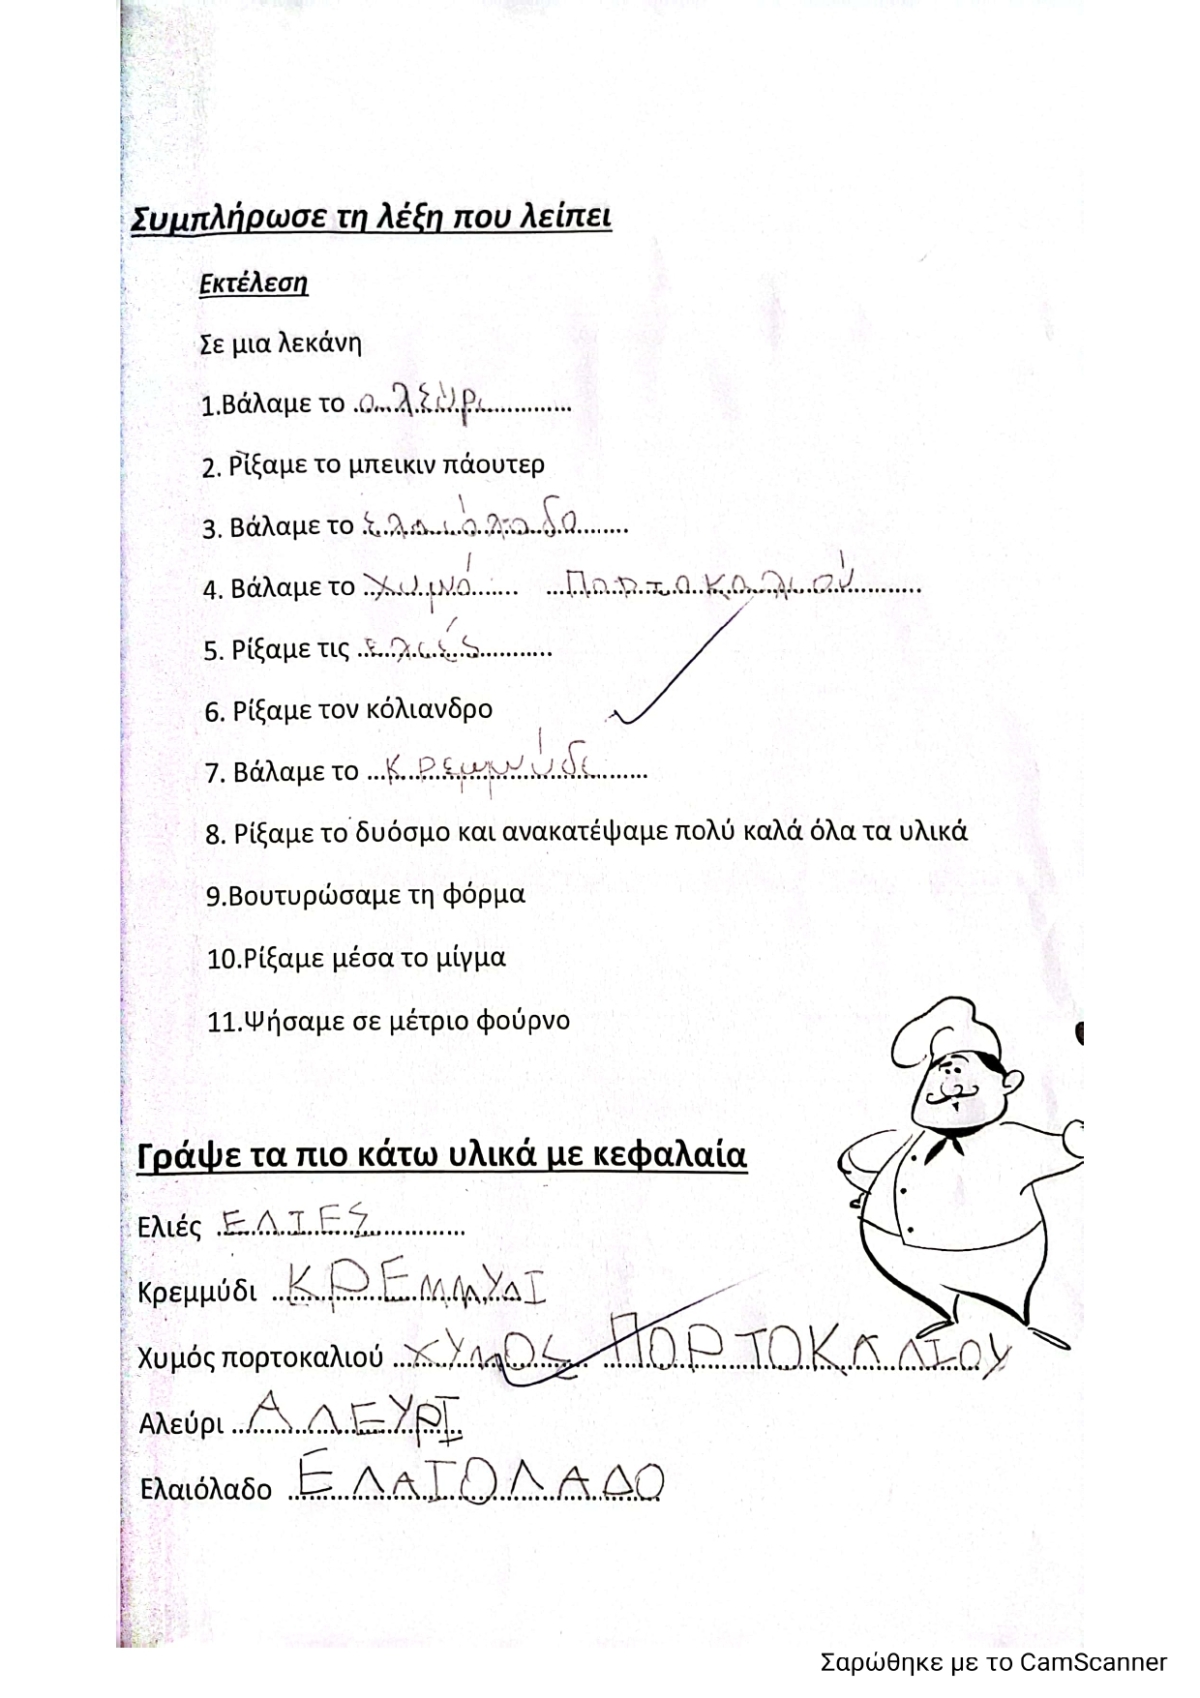 Συμπλήρωσε τη λέξη που λείπει
Εκτέλεση
Σε μια λεκάνη
1.Βάλαμε το αλεύρι
2. Ρίξαμε το μπεικιν πάουτερ
3. Βάλαμε το ελαιόλαδο
4. Βάλαμε το χυμό Πορτοκαλιού
5. Ρίξαμε τις ελιές
6. Ρίξαμε τον κόλιανδρο
7. Βάλαμε το κρεμμύδι
8. Ρίξαμε το δυόσμο και ανακατέψαμε πολύ καλά όλα τα υλικά
9.Βουτυρώσαμε τη φόρμα
10.Ρίξαμε μέσα το μίγμα
11.Ψήσαμε σε μέτριο φούρνο
Γράψε τα πιο κάτω υλικά με κεφαλαία
Ελιές ΕΛΙΕΣ
Κρεμμύδι ΚΡΕΜΜΥΔΙ
Χυμός πορτοκαλιού ΧΥΜΟΣ ΠΟΡΤΟΚΑΛΙΟΥ
Αλεύρι ΑΛΕΥΡΙ
Ελαιόλαδο ΕΛΑΙΟΛΑΔΟ
Σαρώθηκε με το CamScanner